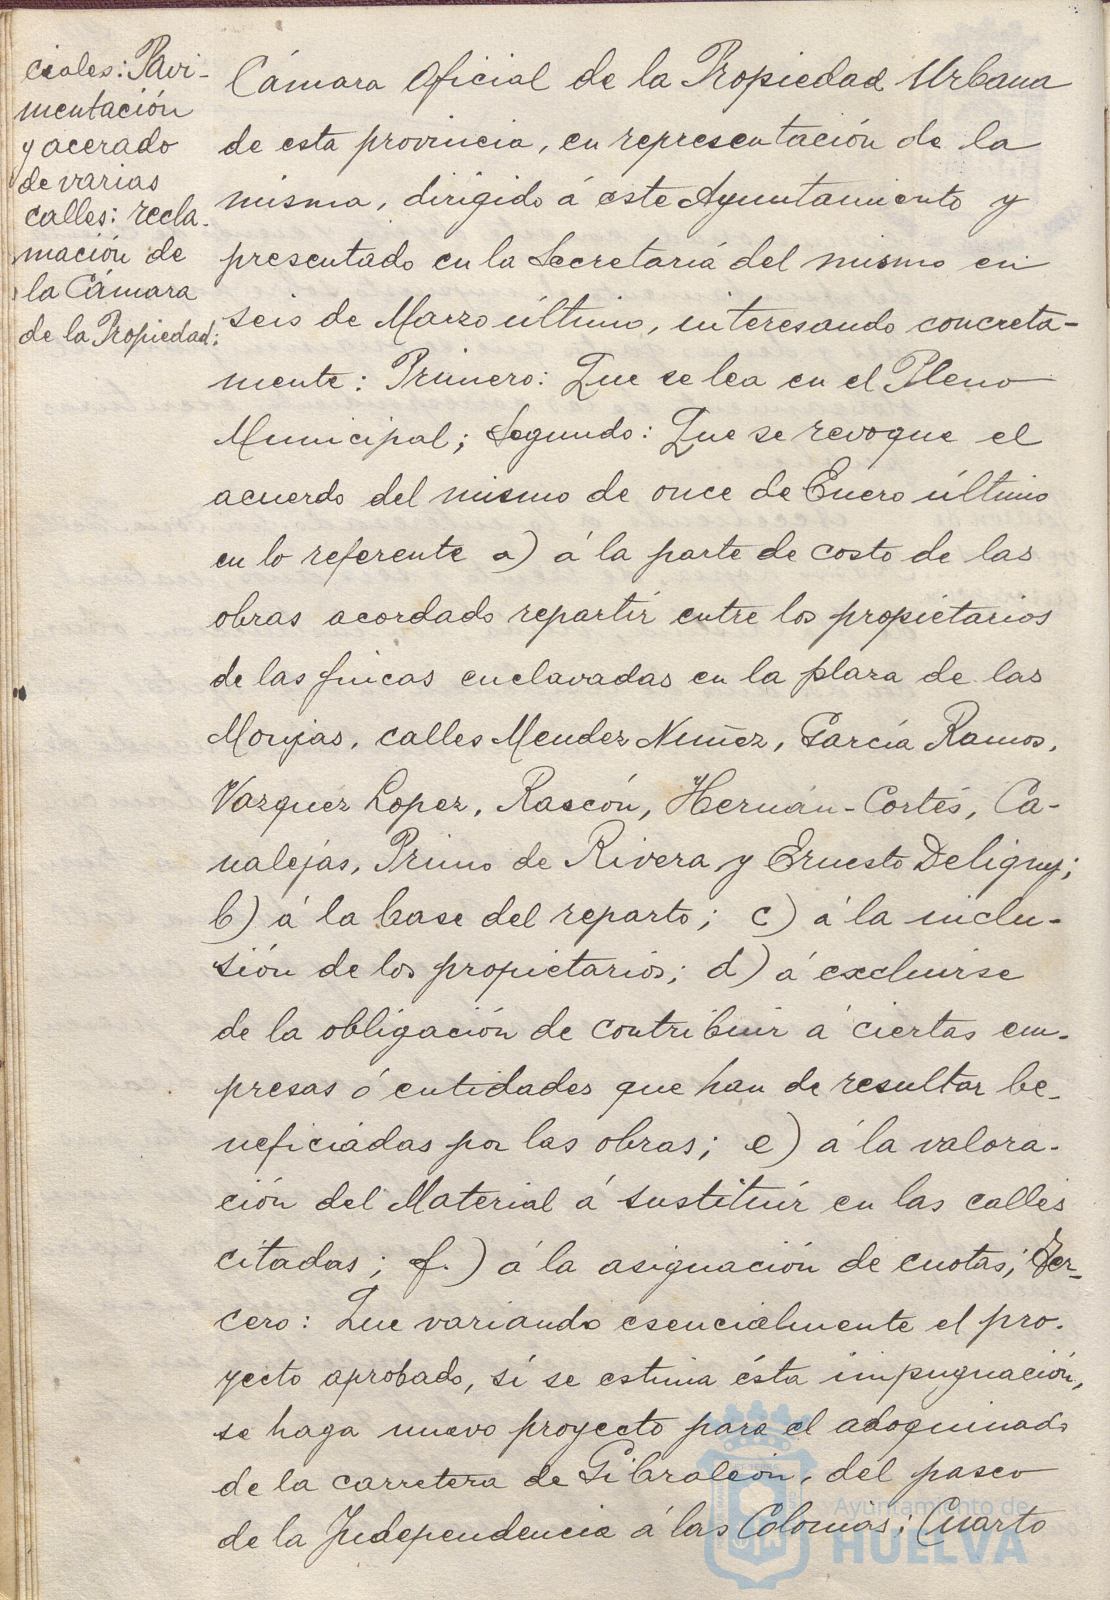 ciales: Pavi-
mentación
y acerado
de varias
calles: recla-
mación de
la Cámara
de la Propiedad:
Cámara Oficial de la Propiedad Urbana
de esta provincia, en representación de la
misma, dirigido á este Ayuntamiento y
presentado en la Secretaría del mismo en
seis de Marzo último, interesando concreta-
mente: Primero: Que se lea en el Pleno
Municipal; Segundo: Que se revoque el
acuerdo del mismo de once de Enero último
en lo referente a) á la parte de costo de las
obras acordado repartir entre los propietarios
de las fincas enclavadas en la plaza de las
Monjas, calles Mendez Nuñez, García Ramos,
Vazquez Lopez, Rascón, Hernán-Cortés, Ca-
nalejas, Primo de Rivera y Ernesto Deligny;
b) á la base del reparto; c) á la inclu-
sión de los propietarios; d) á excluirse
de la obligación de contribuir á ciertas em-
presas ó entidades que han de resultar be-
neficiadas por las obras; e) á la valora-
ción del Material á sustituir en las calles
citadas; f.) á la asignación de cuotas; Ter-
cero: Que variando esencialmente el pro-
yecto aprobado, si se estima ésta impugnación,
se haga nuevo proyecto para el adoquinado
de la carretera de Gibraleón, del paseo
de la Independencia á las Colonias; Cuarto
Ayuntamiento de
HUELVA